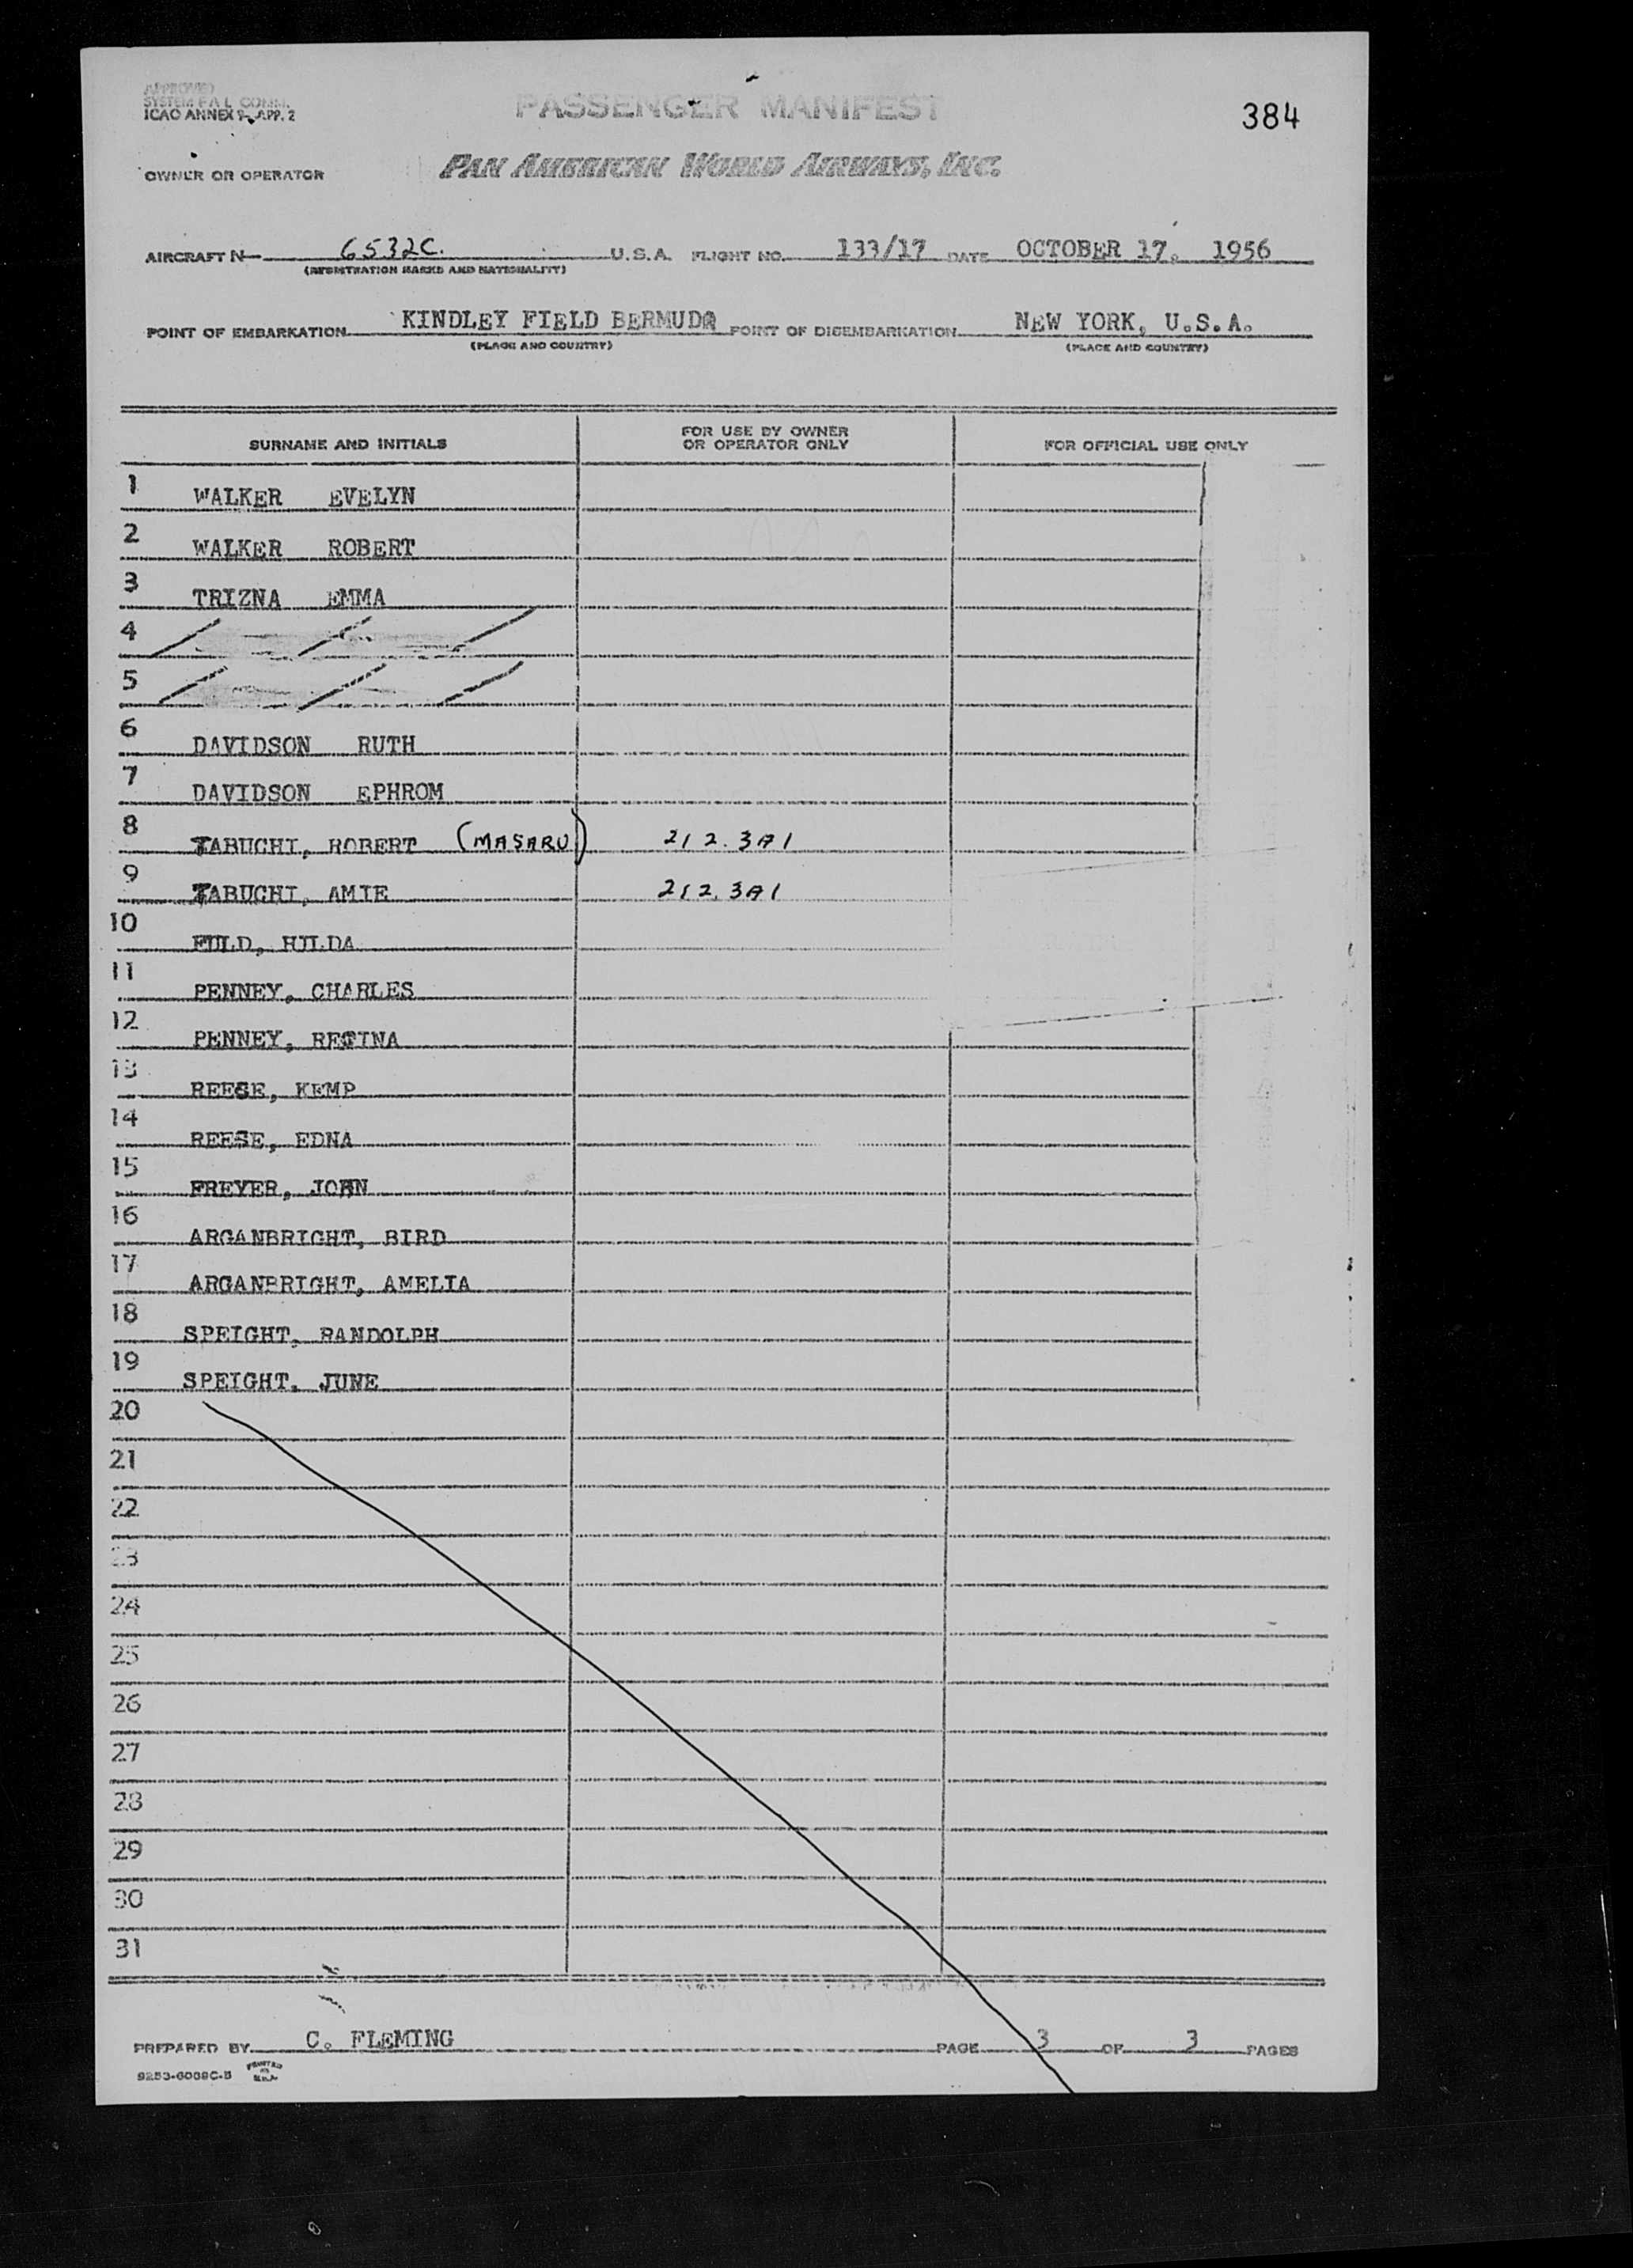 APPROVED
SYSTEM F A L COMM.
ICAO ANNEX 9-APP. 2
PASSENGER MANIFEST
384
OWNER OR OPERATOR
PAN AMERICAN WORLD AIRWAYS, INC.
AIRCRAFT N 6532C. U.S.A. FLIGHT NO. 133/17 DATE OCTOBER 17, 1956
(REGISTRATION MARKS AND NATIONALITY)
POINT OF EMBARKATION KINDLEY FIELD BERMUDA POINT OF DISEMBARKATION NEW YORK, U.S.A.
(PLACE AND COUNTRY) (PLACE AND COUNTRY)
SURNAME AND INITIALS FOR USE BY OWNER OR OPERATOR ONLY FOR OFFICIAL USE ONLY
1 WALKER EVELYN
2 WALKER ROBERT
3 TRIZNA EMMA
4
5
6 DAVIDSON RUTH
7 DAVIDSON EPHROM
8 TABUCHI, ROBERT (MASARU) 212.3A1
9 TABUCHI, AMIE 212.3A1
10 FULD, HILDA
11 PENNEY, CHARLES
12 PENNEY, REGINA
13 REESE, KEMP
14 REESE, EDNA
15 FREYER, JOHN
16 ARGANBRIGHT, BIRD
17 ARGANBRIGHT, AMELIA
18 SPEIGHT, RANDOLPH
19 SPEIGHT, JUNE
20
21
22
23
24
25
26
27
28
29
30
31
PREPARED BY C. FLEMING PAGE 3 OF 3 PAGES
9253-6008C-B PRINTED IN U.S.A.